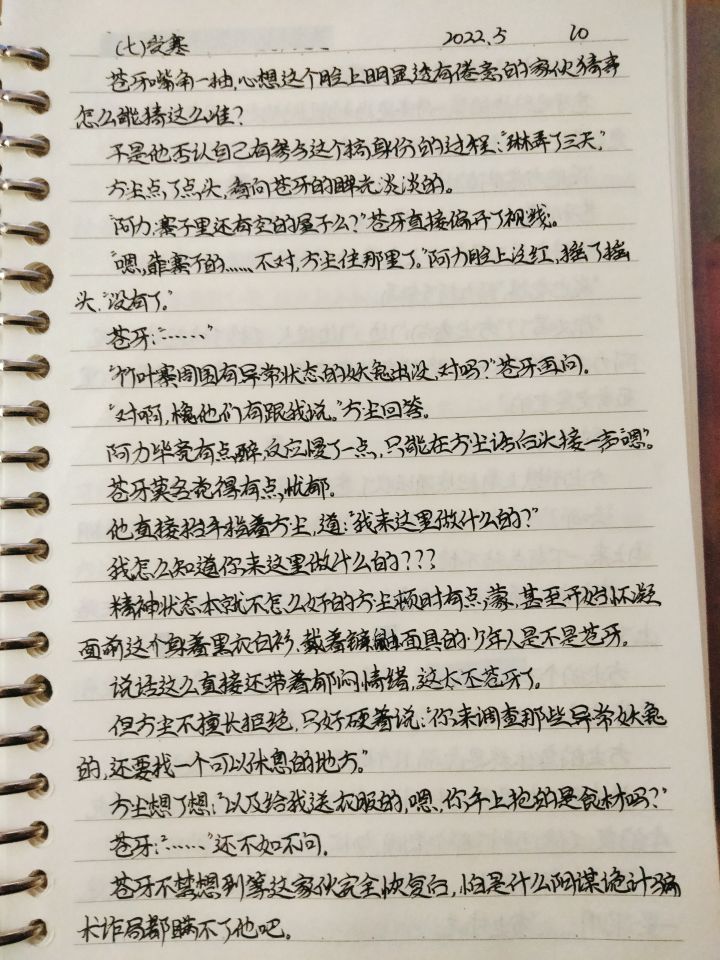 (七)安寨 2022.5 10
苍牙嘴角一抽,心想这个脸上明显透有倦意的家伙猜事
怎么能猜这么准?
于是他否认自己有参与这个搞身份的过程:“琳弄了三天。”
方尘点了点头,看向苍牙的眸光淡淡的。
“阿力,寨子里还有空的屋子么?”苍牙直接偏开了视线。
“嗯,靠寨子的……不对,方尘住那里了。”阿力脸上泛红,摇了摇
头:“没有了。”
苍牙:“……”
“竹叶寨周围有异常状态的妖兔出没,对吗?”苍牙再问。
“对啊,槐他们有跟我说。”方尘回答。
阿力毕竟有点醉,反应慢了一点,只能在方尘话后头接一声“嗯”。
苍牙莫名觉得有点忧郁。
他直接抬手指着方尘,道:“我来这里做什么的?”
我怎么知道你来这里做什么的???
精神状态本就不怎么好的方尘顿时有点蒙,甚至开始怀凝
面前这个身着黑衣白衫、戴着面具的少年人是不是苍牙。
说话这么直接还带着郁闷情绪,这太不苍牙了。
但方尘不擅长拒绝,只好硬着说:“你来调查那些异常妖兔
的,还要找一个可以休息的地方。”
方尘想了想:“以及给我送衣服的,嗯,你手上抱的是食材吗?”
苍牙:“……”还不如不问。
苍牙不禁想到等这家伙完全恢复后,怕是什么阴谋诡计骗
术诈局都瞒不了他吧。